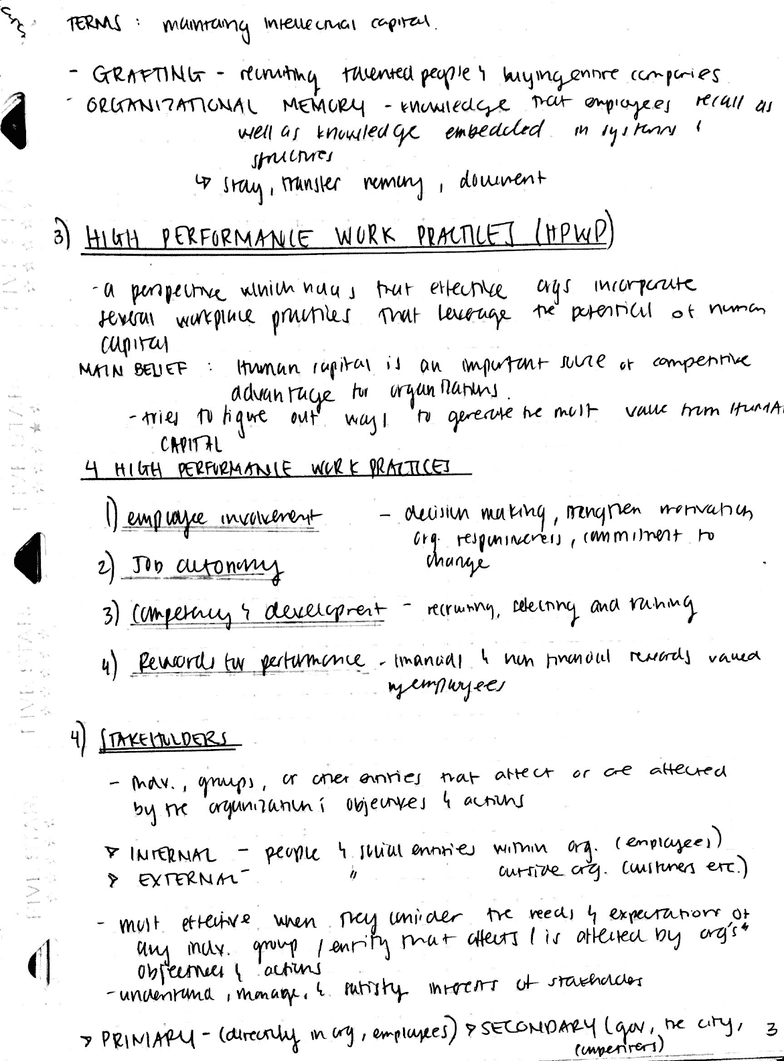 TERMS : maintaing intellectual capital.
- GRAFTING - recruiting talented people & buying entire companies
- ORGANIZATIONAL MEMORY - knowledge that employees recall as
well as knowledge embedded in systems &
structures
↳ stay, transfer memory, document
3) HIGH PERFORMANCE WORK PRACTICES (HPWP)
- a perspective which holds that effective orgs incorporate
several workplace practices that leverage the potential of human
capital
MAIN BELIEF : Human capital is an important source of competitive
advantage for organizations.
- tries to figure out ways to generate the most value from HUMAN
CAPITAL
4 HIGH PERFORMANCE WORK PRACTICES
1) employee involvement - decision making, strengthen motivation
org. responsiveness, commitment to
change
2) Job autonomy
3) Competency & development - recruiting, selecting and training
4) Rewards for performance - financial & non financial rewards valued
by employees
4) STAKEHOLDERS
- indv., groups, or other entities that affect or are affected
by the organization's objectives & actions
> INTERNAL - people & social entities within org. (employees)
> EXTERNAL - " outside org. (customers etc.)
- most effective when they consider the needs & expectations of
any indv. group / entity that affects / is affected by org's
objectives & actions
- understand, manage, & satisfy interests of stakeholders
> PRIMARY - (directly in org, employees) > SECONDARY (gov, the city, 3
competitors)
FIVE STAR
FIVE STAR